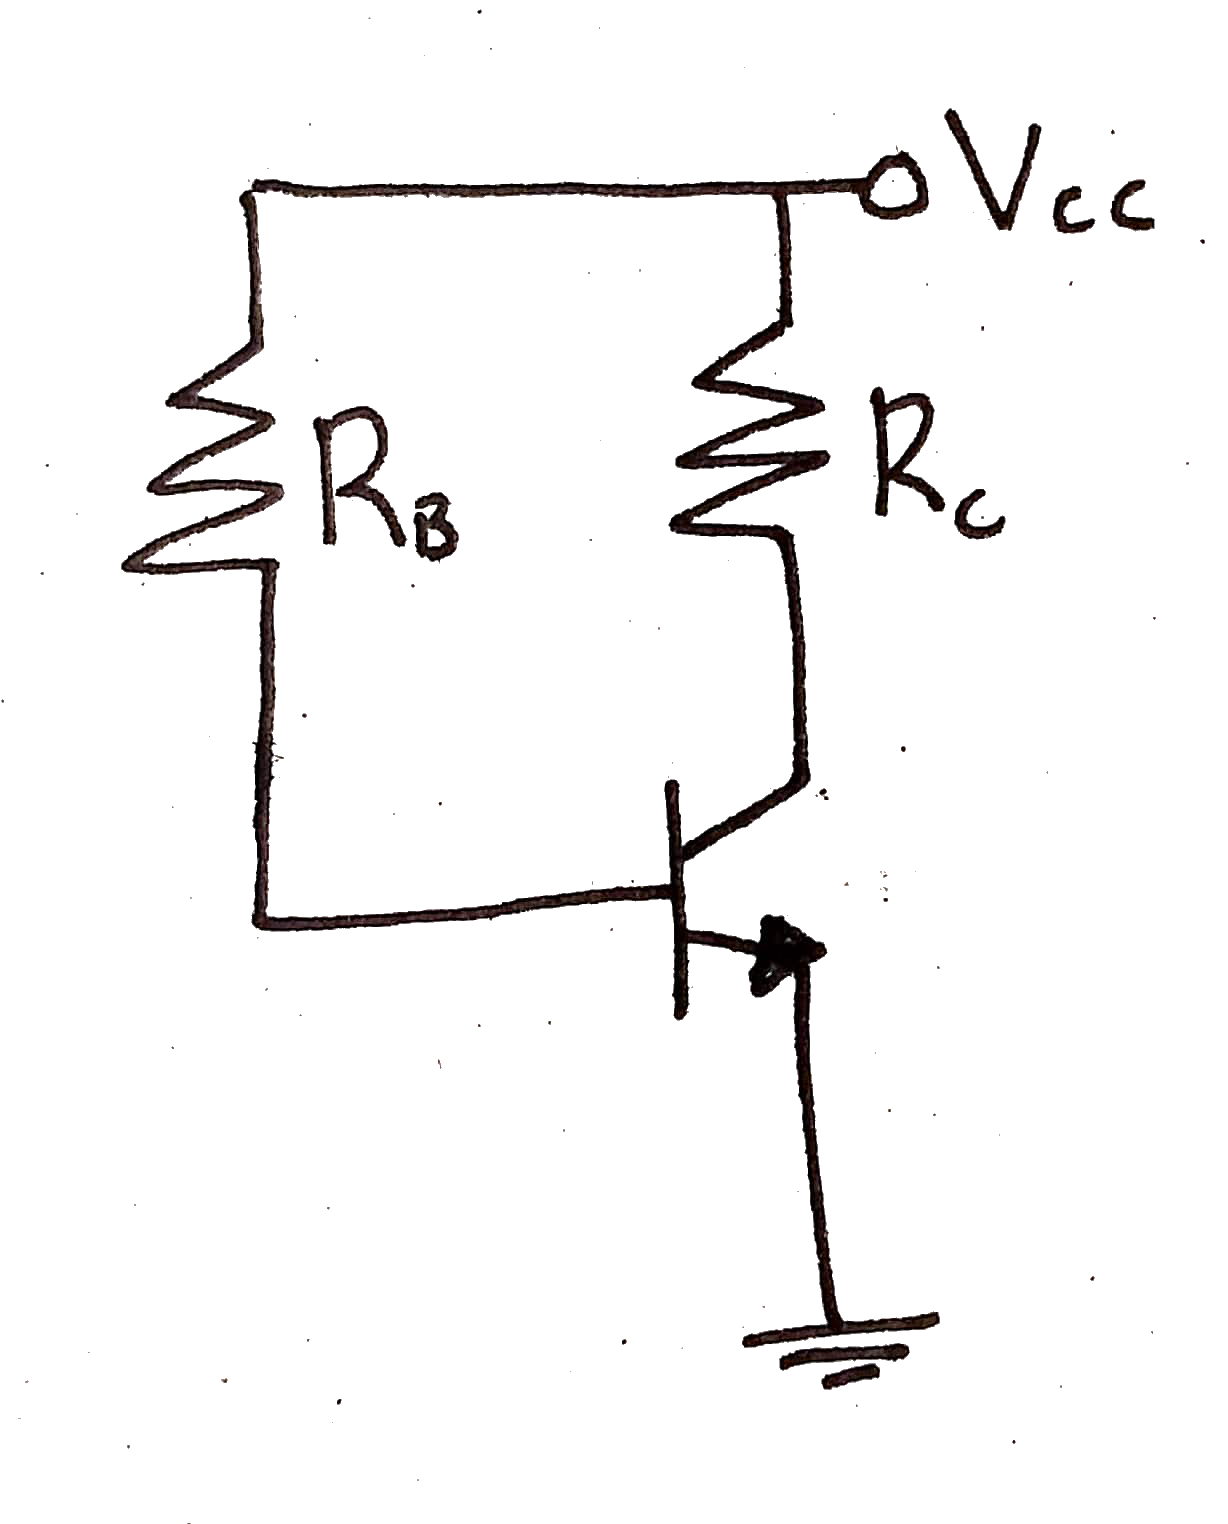 Vcc
RB
RC